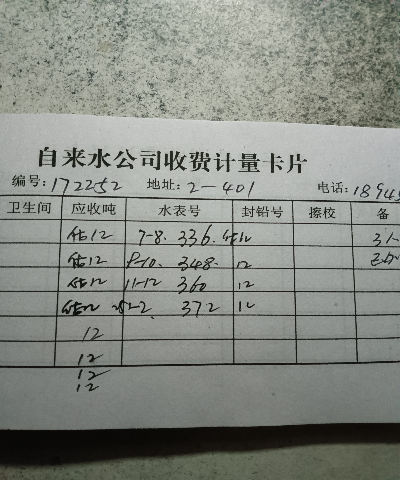 自来水公司收费计量卡片
编号: 172252 地址: 2-401 电话: 18945
卫生间 应收吨 水表号 封铅号 擦校 备
估12 7-8. 336. 估12
估12 9-10. 348. 12
估12 11-12 360 12
估12 1-2. 372 12
12
12
12
12